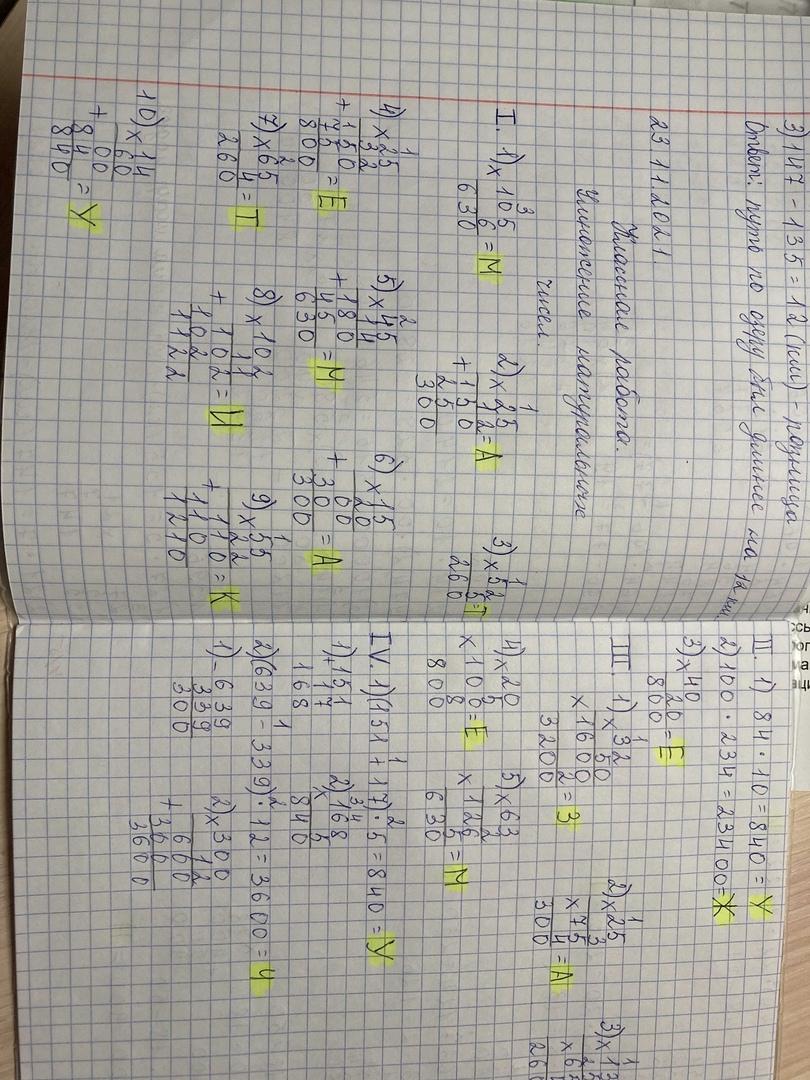 3) 147 - 135 = 12 (км) - разница
Ответ: путь по озеру был длиннее на 12 км.
23.11.2021.
Классная работа.
Умножение натуральных
чисел.
I. 1) 3
x 105
6
630 = М
2) 1
x 25
12
+ 150
25
300 = А
3) 1
x 52
5
260 = Т
4) 1
x 25
32
+ 150
75
800 = Е
5) 2
x 45
14
+ 180
45
630 = М
6) x 15
20
+ 00
30
300 = А
7) 2
x 65
4
260 = Т
8) x 102
11
+ 102
102
1122 = И
9) 1
x 55
22
+ 110
110
1210 = К
10) x 14
60
+ 00
84
840 = У
II. 1) 84 · 10 = 840 = У
2) 100 · 234 = 23400 = Ж
3) x 40
20
800 = Е
III. 1) 1
x 32
50
x 1600
2
3200 = З
2) 1
x 25
3
x 75
4
300 = А
3) 1
4) x 20
5
x 100
8
800 = Е
5) x 63
2
x 126
5
630 = М
IV. 1) (151 + 17) · 5 = 840 = У
1) + 151
17
168
2) 34
x 168
5
840
2) (639 - 339) · 12 = 3600 = Ч
1) - 639
339
300
2) x 300
12
+ 600
300
3600